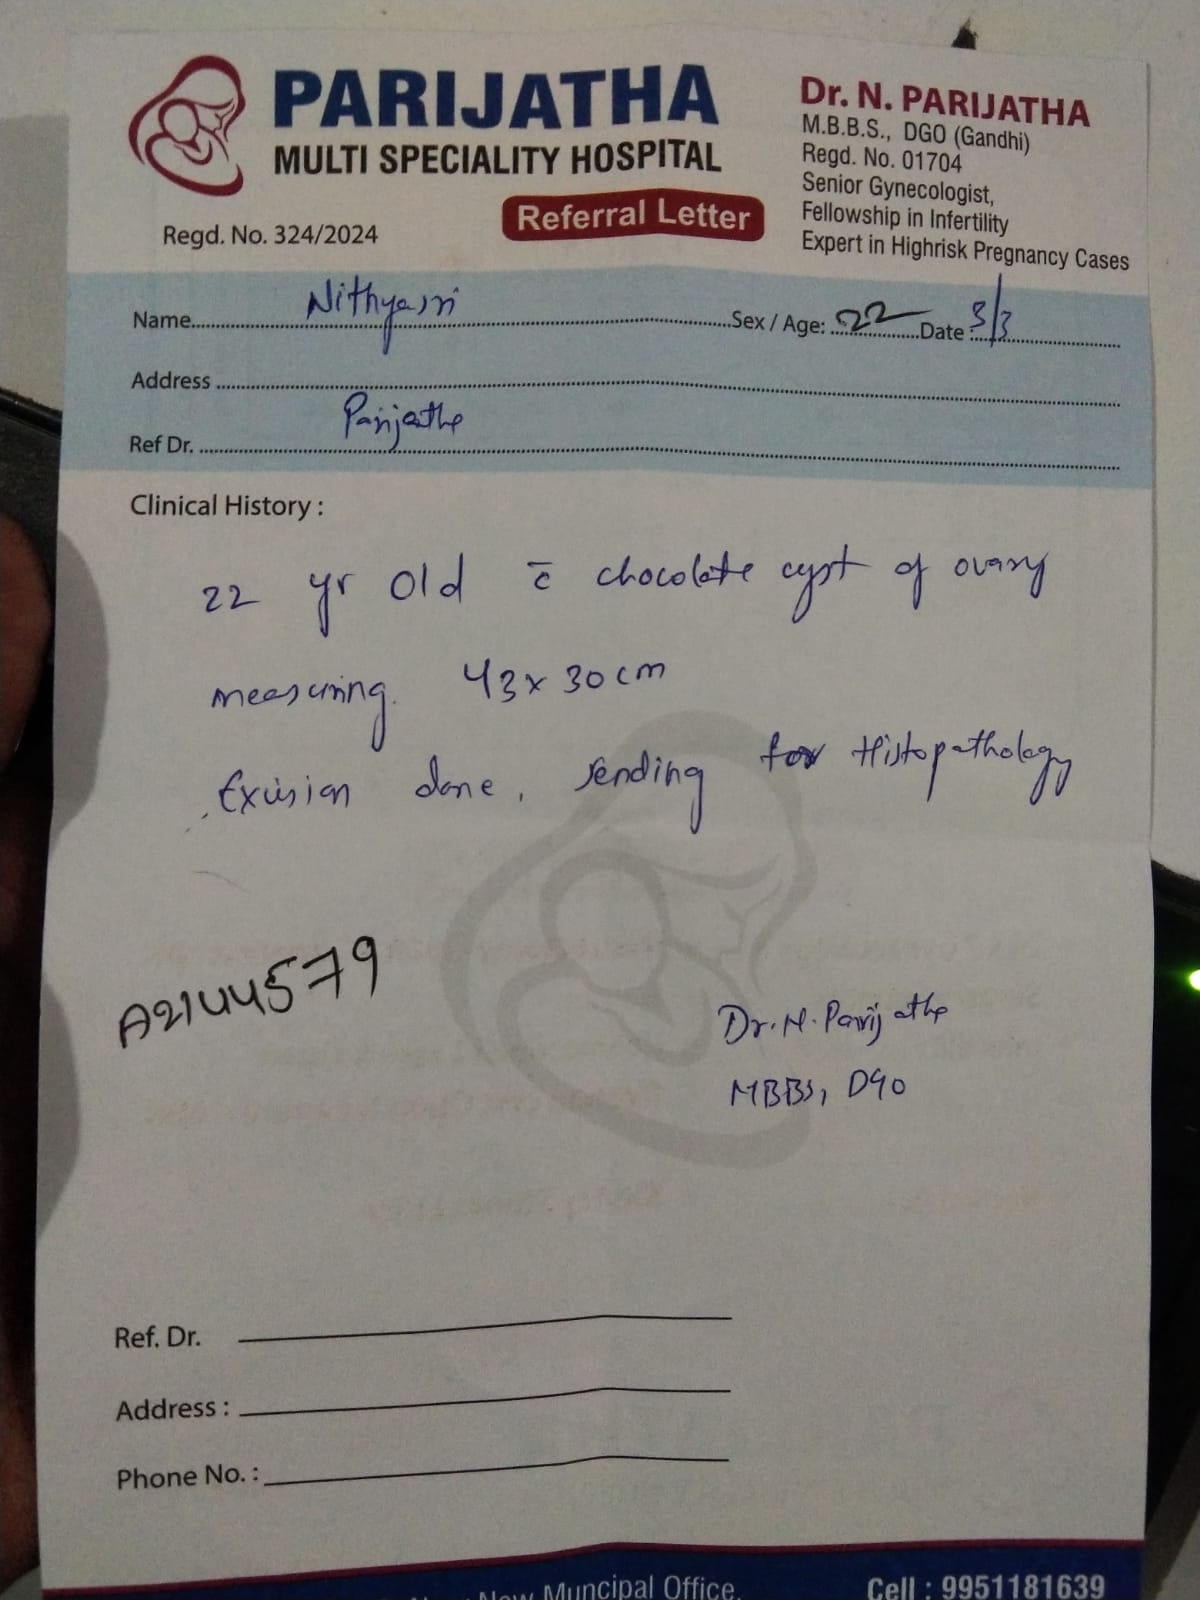 PARIJATHA
MULTI SPECIALITY HOSPITAL
Regd. No. 324/2024
Referral Letter
Dr. N. PARIJATHA
M.B.B.S., DGO (Gandhi)
Regd. No. 01704
Senior Gynecologist,
Fellowship in Infertility
Expert in Highrisk Pregnancy Cases
Name Nithyasri Sex / Age: 22 Date : 3/3
Address
Ref Dr. Parijatha
Clinical History :
22 yr old c̄ chocolate cyst of ovary
measuring. 43 x 30 cm
Excision done, sending for Histopathology
A2144579
Dr. N. Parijatha
MBBS, DGO
Ref. Dr.
Address :
Phone No. :
New Muncipal Office,
Cell : 9951181639